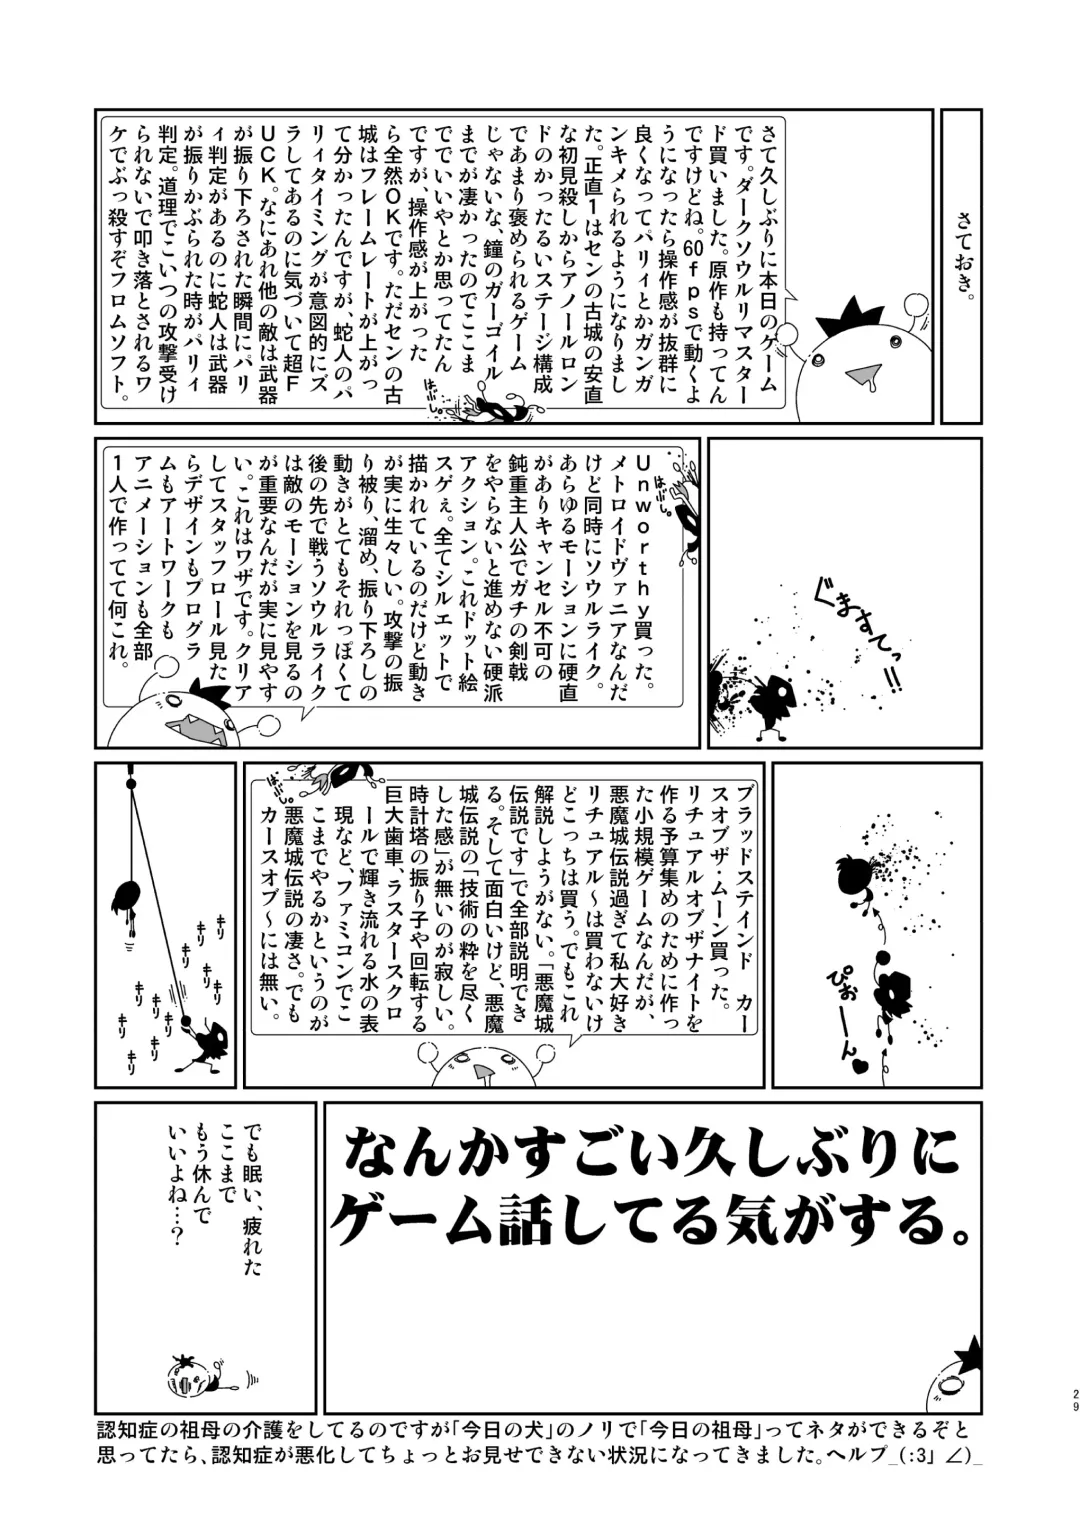 さておき。
さて久しぶりに本日のゲーム
です。ダークソウルリマスター
ド買いました。原作も持ってん
ですけどね。60fpsで動くよ
うになったら操作感が抜群に
良くなってパリィとかガンガ
ンキメられるようになりまし
た。正直1はセンの古城の安直
な初見殺しからアノールロン
ドのかったるいステージ構成
であまり褒められるゲーム
じゃないな、鐘のガーゴイル
までが凄かったのでここま
ででいいやとか思ってたん
ですが、操作感が上がった
ら全然OKです。ただセンの古
城はフレームレートが上がっ
て分かったんですが、蛇人のパ
リィタイミングが意図的にズ
ラしてあるのに気づいて超F
UCK。なにあれ他の敵は武器
が振り下ろされた瞬間にパリ
ィ判定があるのに蛇人は武器
が振りかぶられた時がパリィ
判定。道理でこいつの攻撃受け
られないで叩き落とされるワ
ケでぶっ殺すぞフロムソフト。
はぶし。
ぐますてっ!!
Unworthy買った。
メトロイドヴァニアなんだ
けど同時にソウルライク。
あらゆるモーションに硬直
がありキャンセル不可の
鈍重主人公でガチの剣戟
をやらないと進めない硬派
アクション。これドット絵
スゲぇ。全てシルエットで
描かれているのだけど動き
が実に生々しい。攻撃の振
り被り、溜め、振り下ろしの
動きがとてもそれっぽくて
後の先で戦うソウルライク
は敵のモーションを見るの
が重要なんだが実に見やす
い。これはワザです。クリア
してスタッフロール見た
らデザインもプログラ
ムもアートワークも
アニメーションも全部
1人で作ってて何これ。
はぶし。
ぴおーん
ブラッドステインド カー
スオブザ・ムーン買った。
リチュアルオブザナイトを
作る予算集めのために作っ
た小規模ゲームなんだが、
悪魔城伝説過ぎて私大好き
リチュアル～は買わないけ
どこっちは買う。でもこれ
解説しようがない。「悪魔城
伝説です」で全部説明でき
る。そして面白いけど、悪魔
城伝説の「技術の粋を尽く
した感」が無いのが寂しい。
時計塔の振り子や回転する
巨大歯車、ラスタースクロ
ールで輝き流れる水の表
現など、ファミコンでこ
こまでやるかというのが
悪魔城伝説の凄さ。でも
カースオブ～には無い。
はぶし。
キリ
キリ
キリ
キリ
キリ
キリ
キリ
キリ
なんかすごい久しぶりに
ゲーム話してる気がする。
でも眠い、疲れた
ここまで
もう休んで
いいよね…?
認知症の祖母の介護をしてるのですが「今日の犬」のノリで「今日の祖母」ってネタができるぞと
思ってたら、認知症が悪化してちょっとお見せできない状況になってきました。ヘルプ_(:3」∠)_
29